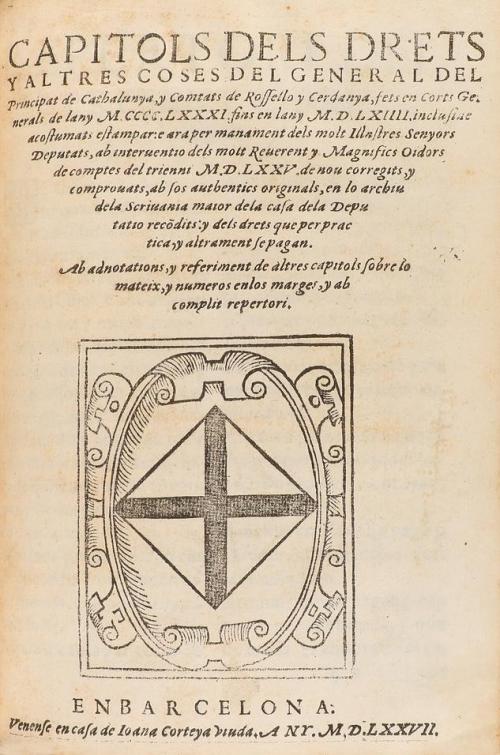 CAPITOLS DELS DRETS
Y ALTRES COSES DEL GENERAL DEL
Principat de Cathalunya, y Comtats de Roſſello y Cerdanya, fets en Corts Ge-
nerals de lany M.CCCC.LXXXI. fins en lany M.D.LXIIII. incluſiue
acoſtumats eſtampar: e ara per manament dels molt Illuſtres Senyors
Deputats, ab interuentio dels molt Reuerent y Magnifics Oidors
de comptes del trienni M.D.LXXV. de nou corregits, y
comprouats, ab ſos authentics originals, en lo archiu
dela Scriuania maior dela caſa dela Depu
tatio recõdits: y dels drets que per prac
tica, y altrament ſe pagan.
Ab adnotations, y referiment de altres capitols ſobre lo
mateix, y numeros en los marges, y ab
complit repertori.
EN BARCELONA:
Venenſe en caſa de Ioana Corteya viuda. A NY. M.D.LXXVII.